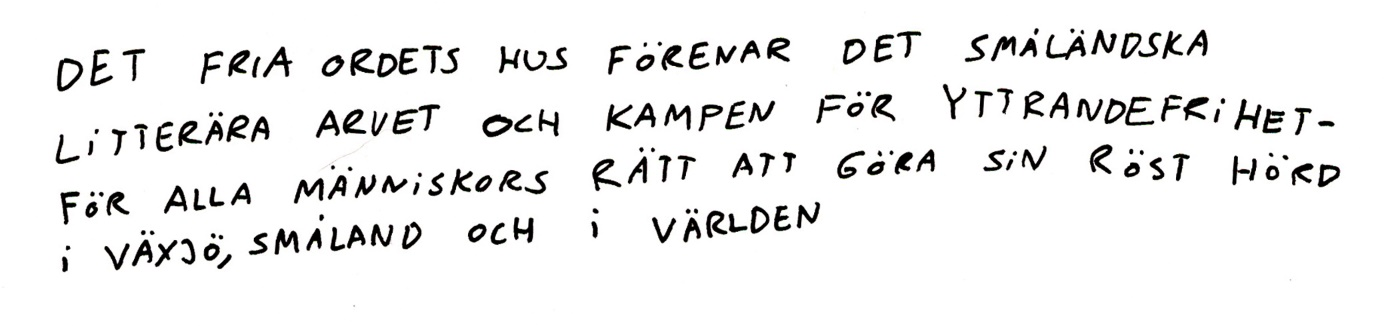 DET FRIA ORDETS HUS FÖRENAR DET SMÅLÄNDSKA
LiTTERÄRA ARVET OCH KAMPEN FÖR YTTRANDEFRiHET-
FÖR ALLA MÄNNiSKORS RÄTT ATT GÖRA SiN RÖST HÖRD
i VÄXJÖ, SMÅLAND OCH i VÄRLDEN